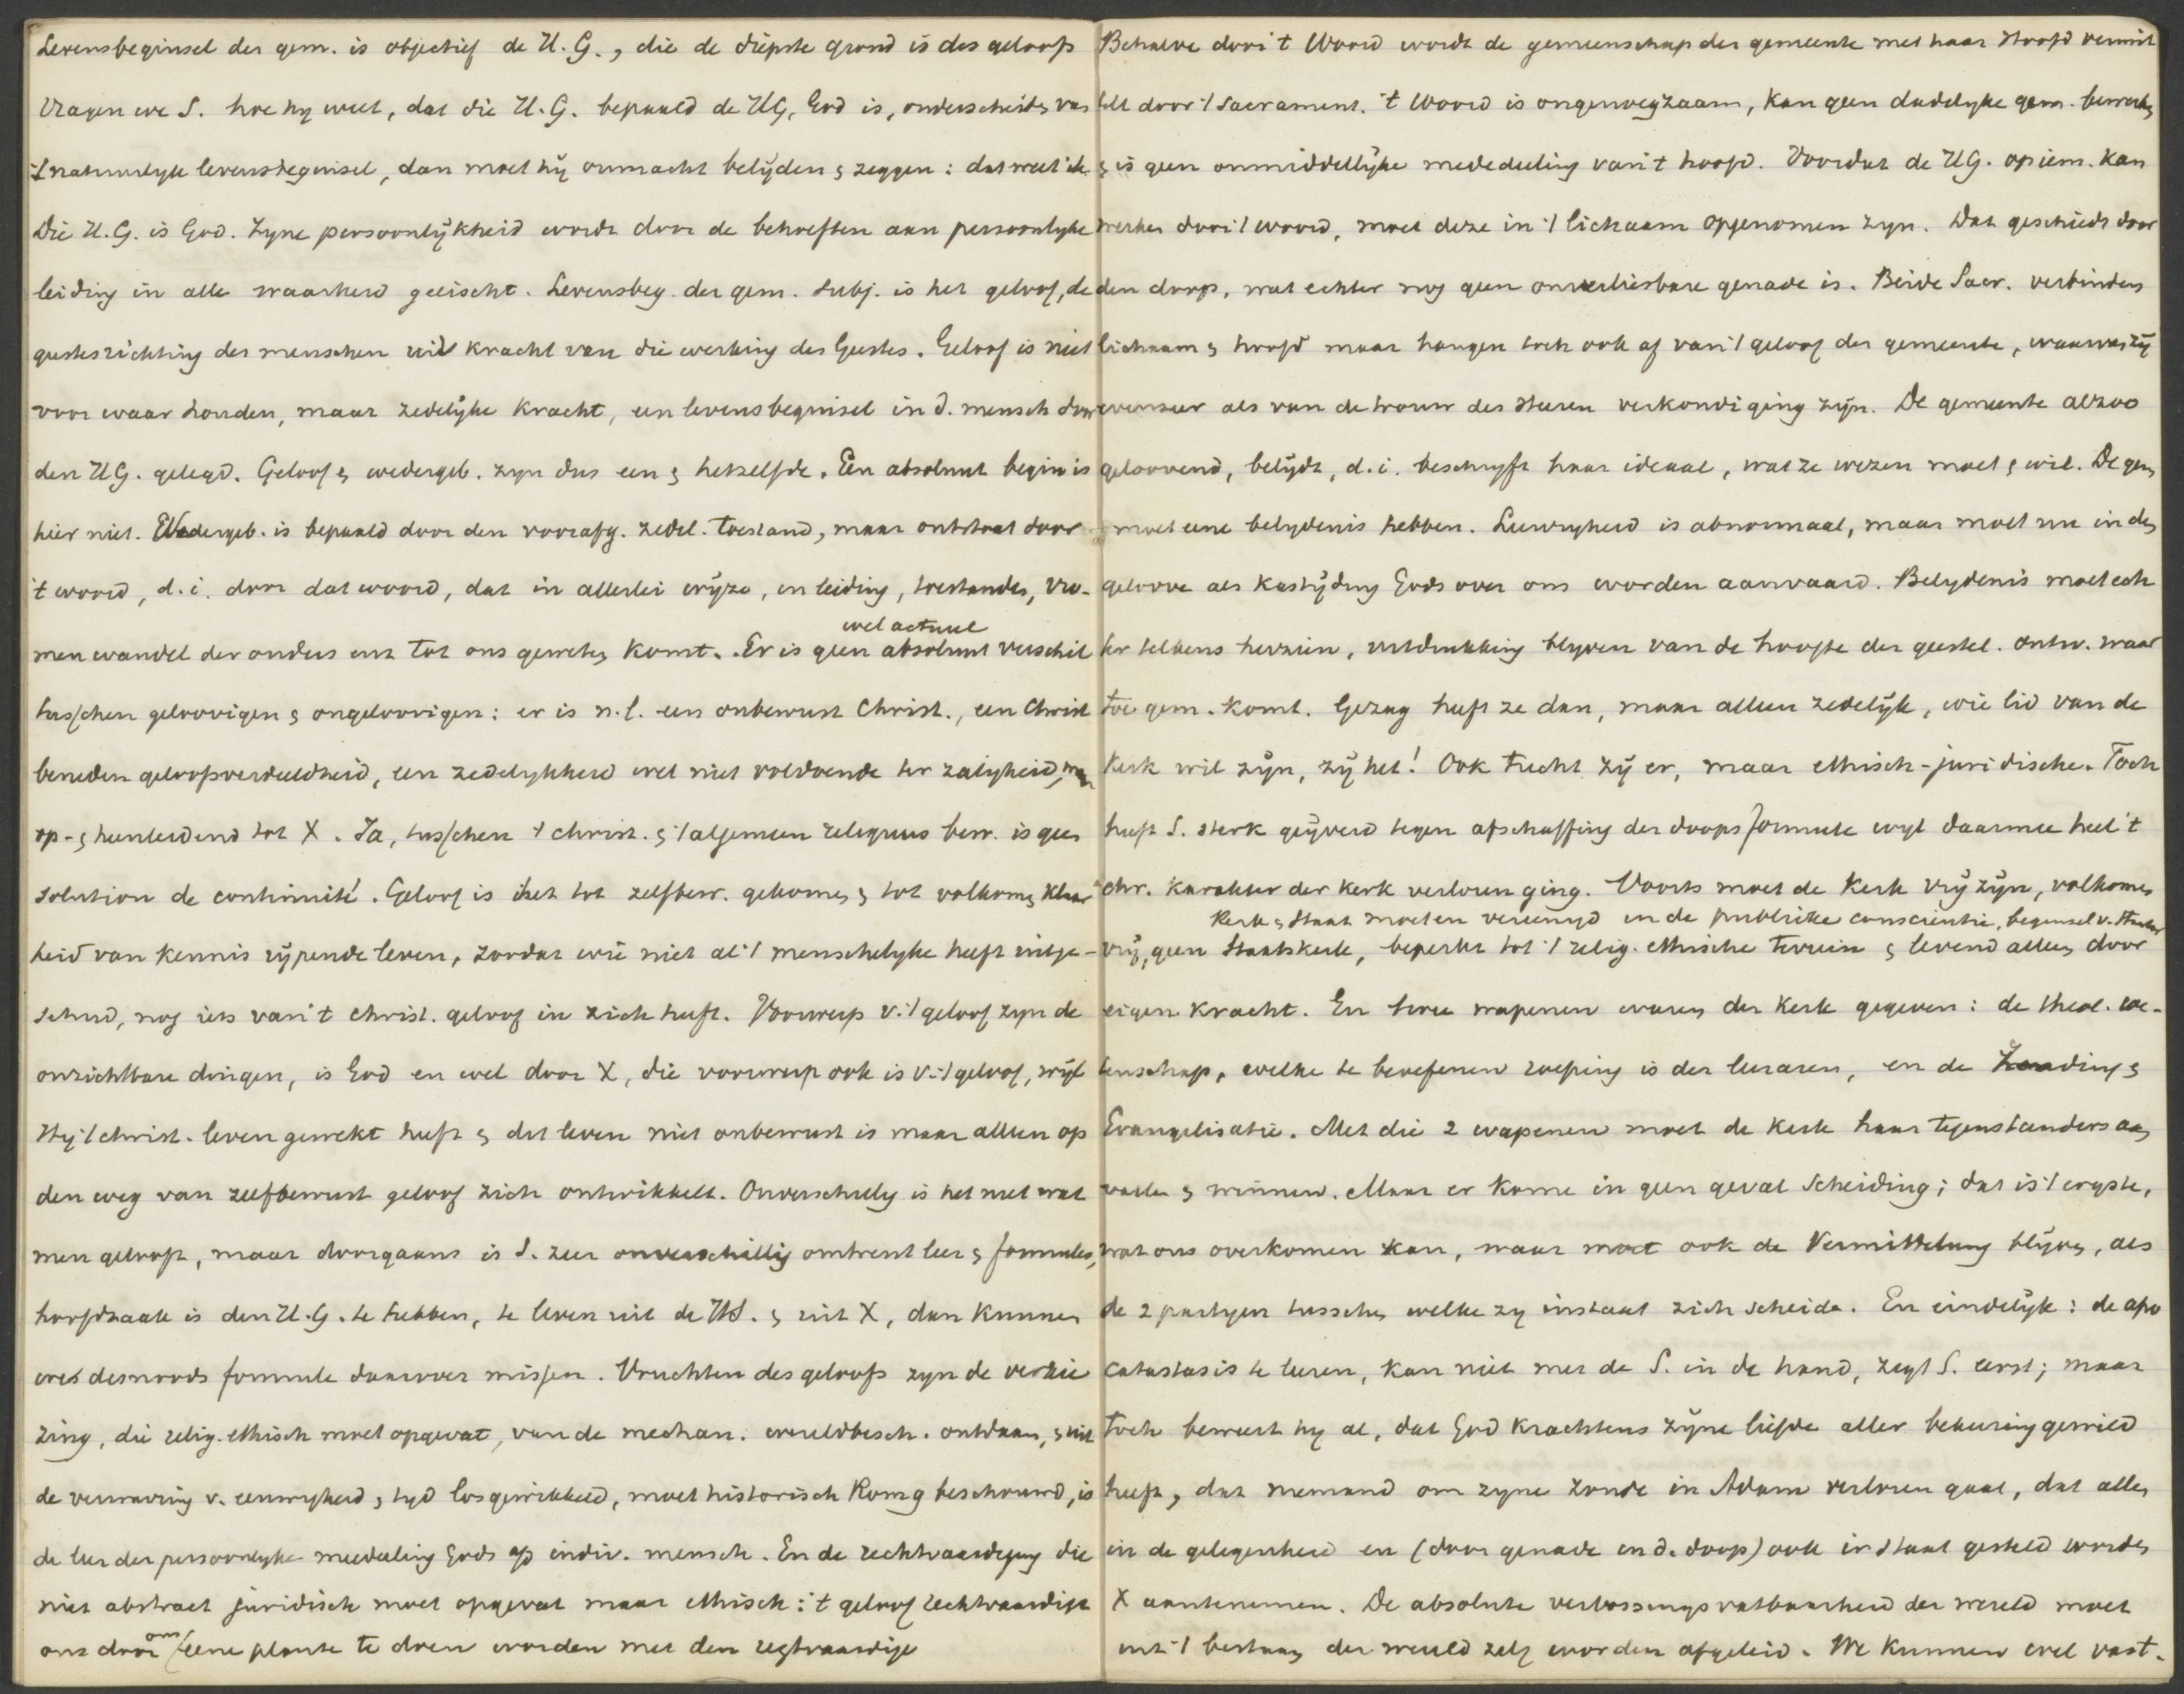 Levensbeginsel der gem. is objectief de H.G., die de diepste grond is des geloofs
Vragen we S. hoe hy weet, dat die H.G. bepaald de HG, God is, onderscheiden van
't natuurlyk levensbeginsel, dan moet hij onmacht belijden & zeggen: dat weet ik
Die H.G. is God. Zyne persoonlijkheid wordt door de behoeften aan persoonlyke
leiding in alle waarheid geëischt. Levensbeg. der gem. subj. is het geloof, de
geestesrichting des menschen uit kracht van die werking des Geestes. Geloof is niet
voor waar houden, maar zedelijke kracht, een levensbeginsel in d. mensch door
den HG. gelegd. Geloof & wedergeb. zyn dus een & hetzelfde. Een absoluut begin is
hier niet. Wedergeb. is bepaald door den voorafg. zedel. toestand, maar ontstaat door
't woord, d.i. door dat woord, dat in allerlei wijze, en leiding, toestanden, vro-
wel actueel
men wandel der ouders enz tot ons geweten komt. Er is geen absoluut verschil
tusschen geloovigen & ongeloovigen: er is n.l. een onbewust Christ., een Christ
beneden geloofsverdeeldheid, een zedelykheid wel niet voldoende ter zaligheid, maar
op- & heenleidend tot X. Ja, tusschen 't christ. & 't algemeen religieus bew. is geen
solution de continuité. Geloof is het tot zelfbew. gekomen & tot volkomen klaar
heid van kennis rijpende leven, zoodat wie niet al 't menschelyke heeft uitge-
schud, nog iets van 't christ. geloof in zich heeft. Voorwerp v. 't geloof zyn de
onzichtbare dingen, is God en wel door X, die voorwerp ook is v. 't geloof, wijl
Hij 't christ. leven gewekt heeft & dit leven niet onbewust is maar alleen op
den weg van zelfbewust geloof zich ontwikkelt. Onverschillig is het niet wat
men gelooft, maar doorgaans is S. zeer onverschillig omtrent leer & formules,
hoofdzaak is den H.G. te hebben, te leven uit de HS. & uit X, dan kunnen
we desnoods formule daarover missen. Vruchten des geloofs zyn de verkie
zing, die relig. ethisch moet opgevat, van de mechan. wereldbesch. ontdaan, & uit
de verwarring v. eeuwigheid & tyd losgewikkeld, moet historisch Rom 9 beschouwd, is
de leer der persoonlyke meedeeling Gods op indiv. mensch. En de rechtvaardiging die
niet abstract juridisch moet opgevat maar ethisch: 't geloof rechtvaardigt
ons door ons eene plante te doen worden met den regtvaardige
Behalve door 't Woord wordt de gemeenschap der gemeente met haar Hoofd bemid
deld door 't Sacrament. 't Woord is ongenoegzaam, kan geen dadelyke gem. bewerken
& is geen onmiddellijke mededeeling van 't hoofd. Voordat de HG. op iem. kan
werken door 't woord, moet deze in 't lichaam opgenomen zyn. Dat geschiedt door
den doop, wat echter nog geen onverliesbare genade is. Beide Sacr. verbinden
lichaam & hoofd maar hangen toch ook af van 't geloof der gemeente, waarvan zij
evenzeer als van de trouw des Heeren verkondiging zijn. De gemeente alzoo
geloovend, belijdt, d.i. beschryft haar ideaal, wat ze wezen moet & wil. De gem
moet eene belydenis hebben. Leervryheid is abnormaal, maar moet nu in den
geloove als kastijding Gods over ons worden aanvaard. Belydenis moet ech
ter telkens herzien, uitdrukking blyven van de hoogte der geestel. ontw. waar
toe gem. komt. Gezag heeft ze dan, maar alleen zedelijk, wie lid van de
Kerk wil zijn, zij het! Ook tucht zij er, maar ethisch-juridische. Toch
heeft S. sterk geijverd tegen afschaffing der doopsformule wyl daarmee heel 't
chr. karakter der kerk verloren ging. Voorts moet de Kerk vrij zijn, volkomen
Kerk & Staat moeten vereenigd in de publieke conscientie, beginsel v.
vrij, geen Staatskerk, beperkt tot 't relig. ethische terrein & levend alleen door
eigen kracht. En twee wapenen waren der Kerk gegeven: de theol. we-
tenschap, welke te beoefenen roeping is der leeraren, en de Zending &
Evangelisatie. Met die 2 wapenen moet de Kerk haar tegenstanders aan
vallen & winnen. Maar er kome in geen geval scheiding; dat is 't ergste,
wat ons overkomen kan, maar moet ook de Vermittelung blijven, als
de 2 partyen tusschen welke zy instaat zich scheiden. En eindelijk: de apo
catastasis te leeren, kan niet met de S. in de hand, zegt S. eerst; maar
toch beweert hy al, dat God krachtens zijne liefde aller bekeering gewild
heeft, dat niemand om zyne zonde in Adam verloren gaat, dat allen
in de gelegenheid en (door genade en d. doop) ook in staat gesteld worden
X aantenemen. De absolute verlossingsvatbaarheid der wereld moet
uit 't bestaan der wereld zelf worden afgeleid. We kunnen wel vast-